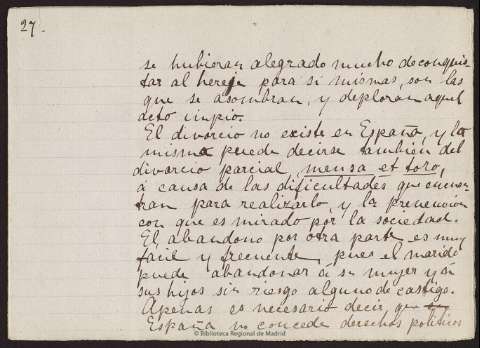 27.
se hubieran alegrado mucho de conquis
tar al hereje para si mismas, son las
que se asombran, y deploran aquel
acto impio.
El divorcio no existe en España, y lo
mismo puede decirse tambien del
divorcio parcial, mensa et toro,
á causa de las dificultades que encuen
tran para realizarlo, y la prevencion
con que es mirado por la sociedad.
El abandono por otra parte es muy
fácil y frecuente, pues el marido
puede abandonar á su mujer y á
sus hijos sin riesgo alguno de castigo.
Apenas es necesario decir que
España no concede derechos politicos
© Biblioteca Regional de Madrid